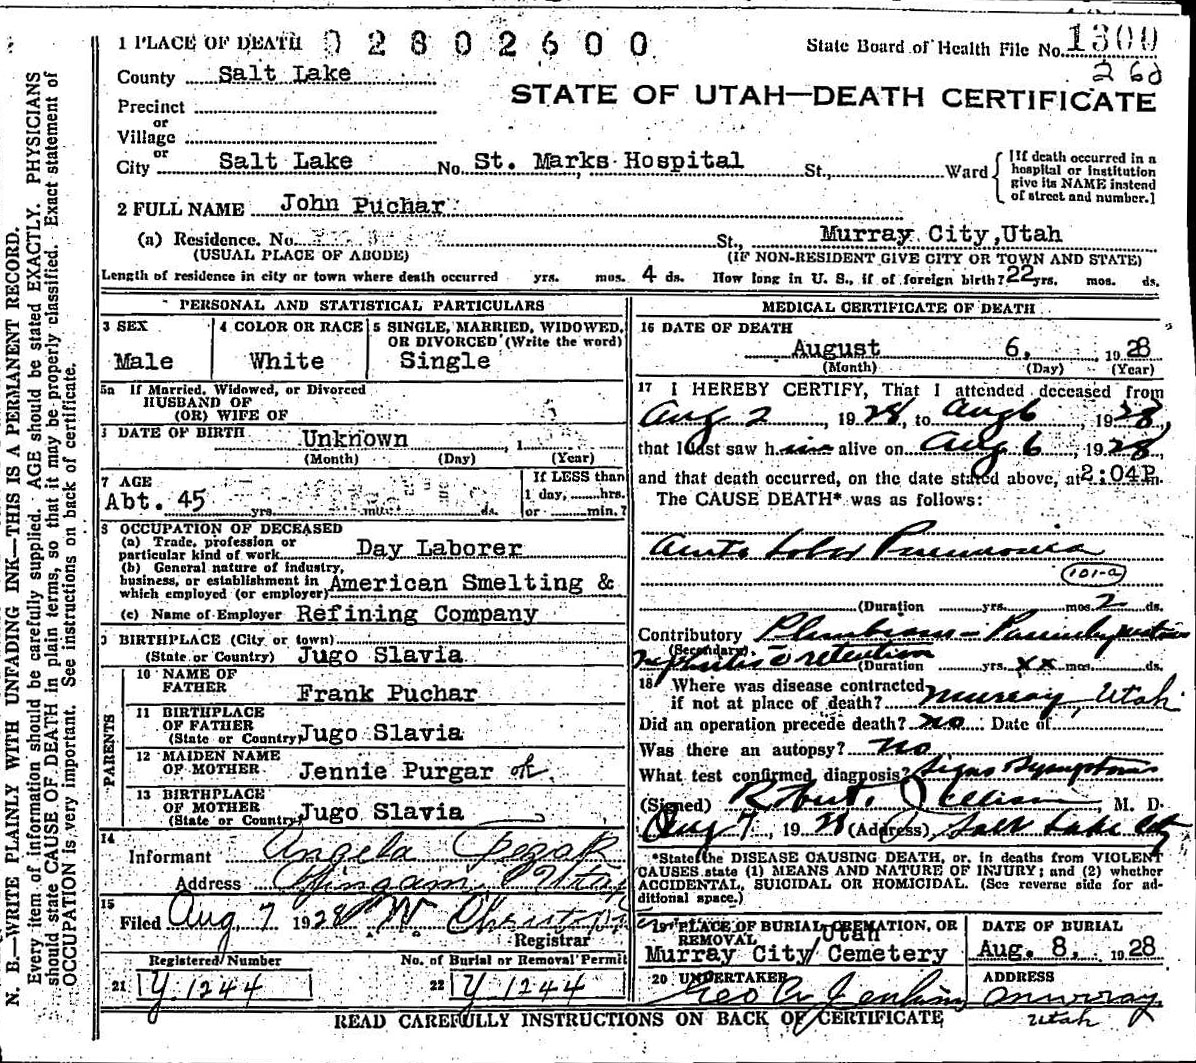 1 PLACE OF DEATH 02802600
State Board of Health File No. 1300
260
County Salt Lake
STATE OF UTAH—DEATH CERTIFICATE
Precinct
or
Village
or
City Salt Lake No. St. Marks Hospital St., Ward
[If death occurred in a
hospital or institution
give its NAME instead
of street and number.]
2 FULL NAME John Puchar
(a) Residence. No. St., Murray City, Utah
(USUAL PLACE OF ABODE) (IF NON-RESIDENT GIVE CITY OR TOWN AND STATE)
Length of residence in city or town where death occurred yrs. mos. 4 ds. How long in U. S., if of foreign birth? 22 yrs. mos. ds.
PERSONAL AND STATISTICAL PARTICULARS
3 SEX
Male
4 COLOR OR RACE
White
5 SINGLE, MARRIED, WIDOWED,
OR DIVORCED (Write the word)
Single
5a If Married, Widowed, or Divorced
HUSBAND OF
(OR) WIFE OF
DATE OF BIRTH Unknown , 1
(Month) (Day) (Year)
7 AGE
Abt. 45
yrs. mos. ds.
If LESS than
1 day, hrs.
or min.?
8 OCCUPATION OF DECEASED
(a) Trade, profession or
particular kind of work Day Laborer
(b) General nature of industry,
business, or establishment in
which employed (or employer) American Smelting &
(c) Name of Employer Refining Company
9 BIRTHPLACE (City or town)
(State or Country) Jugo Slavia
PARENTS
10 NAME OF
FATHER Frank Puchar
11 BIRTHPLACE
OF FATHER
(State or Country) Jugo Slavia
12 MAIDEN NAME
OF MOTHER Jennie Purgar ok
13 BIRTHPLACE
OF MOTHER
(State or Country) Jugo Slavia
14
Informant Angela
Address Bingam, Utah
15
Filed Aug 7 1928
Registrar
Registered Number No. of Burial or Removal Permit
21 Y 1244 22 Y 1244
MEDICAL CERTIFICATE OF DEATH
16 DATE OF DEATH
August 6, 1928
(Month) (Day) (Year)
17 I HEREBY CERTIFY, That I attended deceased from
Aug 2, 1928, to Aug 6, 1928,
that I last saw him alive on Aug 6, 1928,
and that death occurred, on the date stated above, at 2:04 P.m.
The CAUSE DEATH* was as follows:
Acute Lobar Pneumonia
101-a
(Duration yrs. mos. 2 ds.
Contributory Plumbism -
(Secondary)
nephritis c retention
(Duration yrs. xx mos. ds.
18 Where was disease contracted
if not at place of death? Murray, Utah
Did an operation precede death? no Date of
Was there an autopsy? No
What test confirmed diagnosis? Signs Symptoms
(Signed) Robert , M. D.
Aug 7, 1928 (Address) Salt Lake City
*State the DISEASE CAUSING DEATH, or, in deaths from VIOLENT
CAUSES state (1) MEANS AND NATURE OF INJURY; and (2) whether
ACCIDENTAL, SUICIDAL OR HOMICIDAL. (See reverse side for ad-
ditional space.)
19 PLACE OF BURIAL, CREMATION, OR
REMOVAL Utah
Murray City Cemetery
DATE OF BURIAL
Aug. 8, 1928
20 UNDERTAKER
Geo W. Jenkins
ADDRESS
Murray,
Utah
READ CAREFULLY INSTRUCTIONS ON BACK OF CERTIFICATE
N. B.—WRITE PLAINLY WITH UNFADING INK—THIS IS A PERMANENT RECORD.
Every item of information should be carefully supplied. AGE should be stated EXACTLY. PHYSICIANS
should state CAUSE OF DEATH in plain terms, so that it may be properly classified. Exact statement of
OCCUPATION is very important. See instructions on back of certificate.